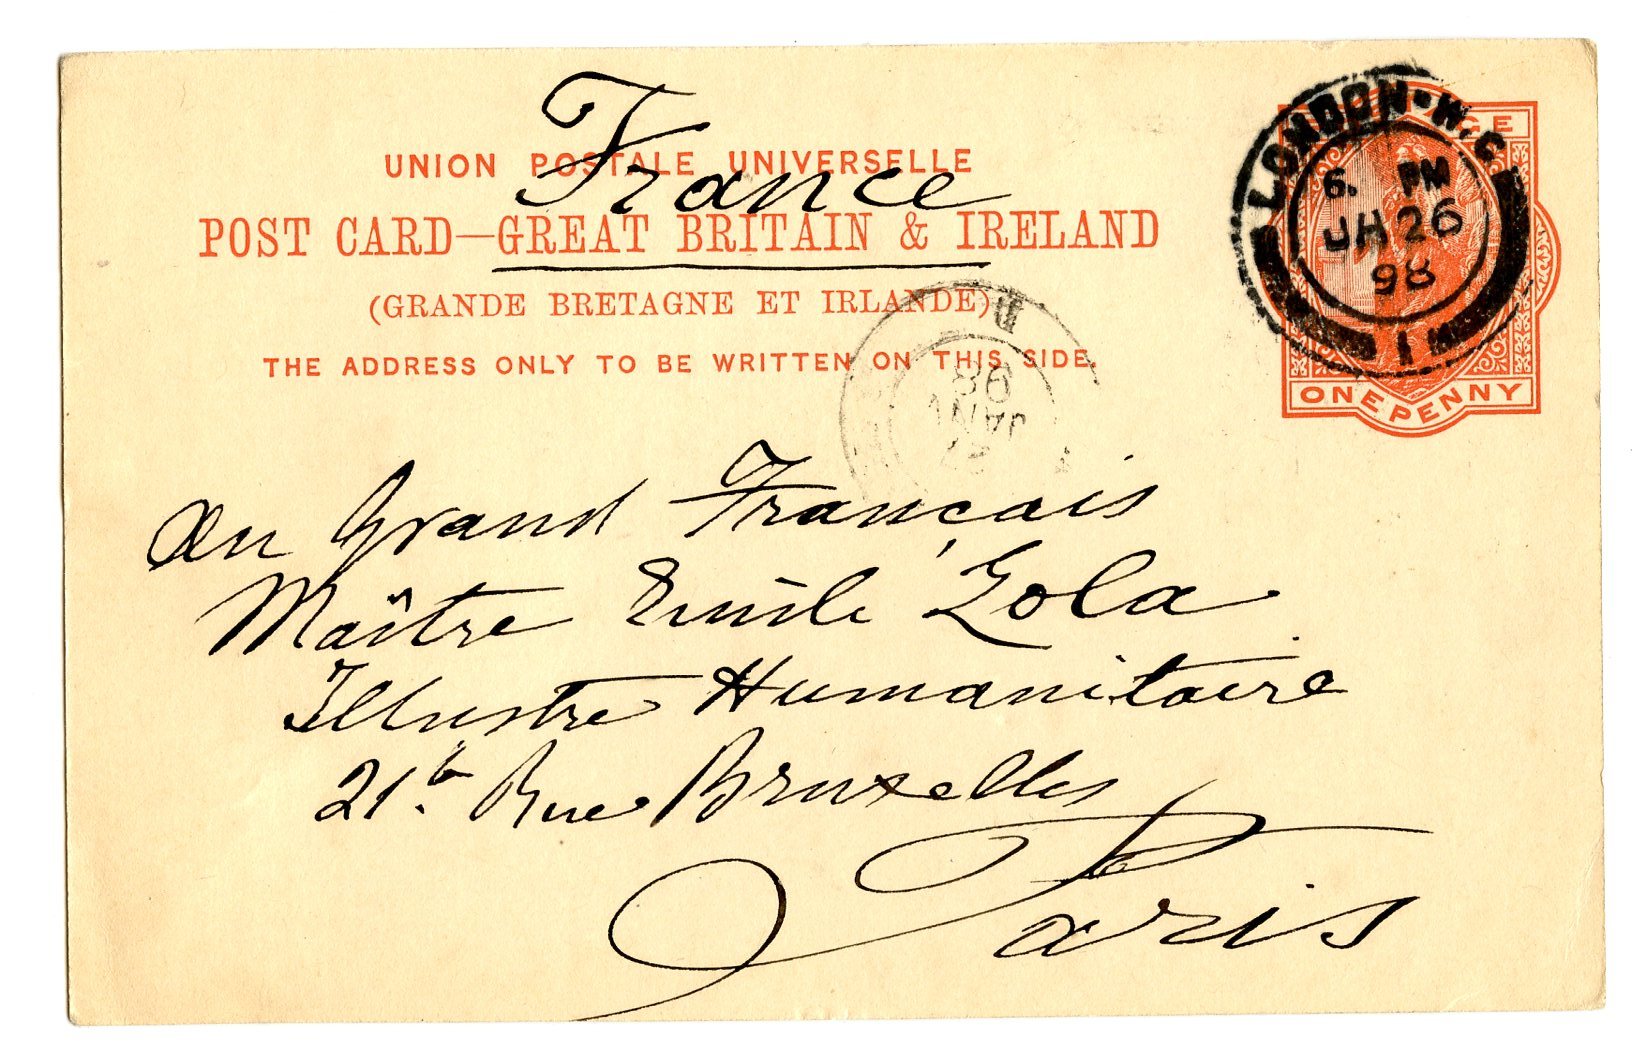 France
UNION POSTALE UNIVERSELLE
POST CARD—GREAT BRITAIN & IRELAND
(GRANDE BRETAGNE ET IRLANDE)
THE ADDRESS ONLY TO BE WRITTEN ON THIS SIDE.
LONDON·W.C
6. PM
JA 26
98
1
ONE PENNY
27
JANV
98
Au Grand Français
Maître Emile Zola
Illustre Humanitaire
21b. Rue Bruxelles
Paris